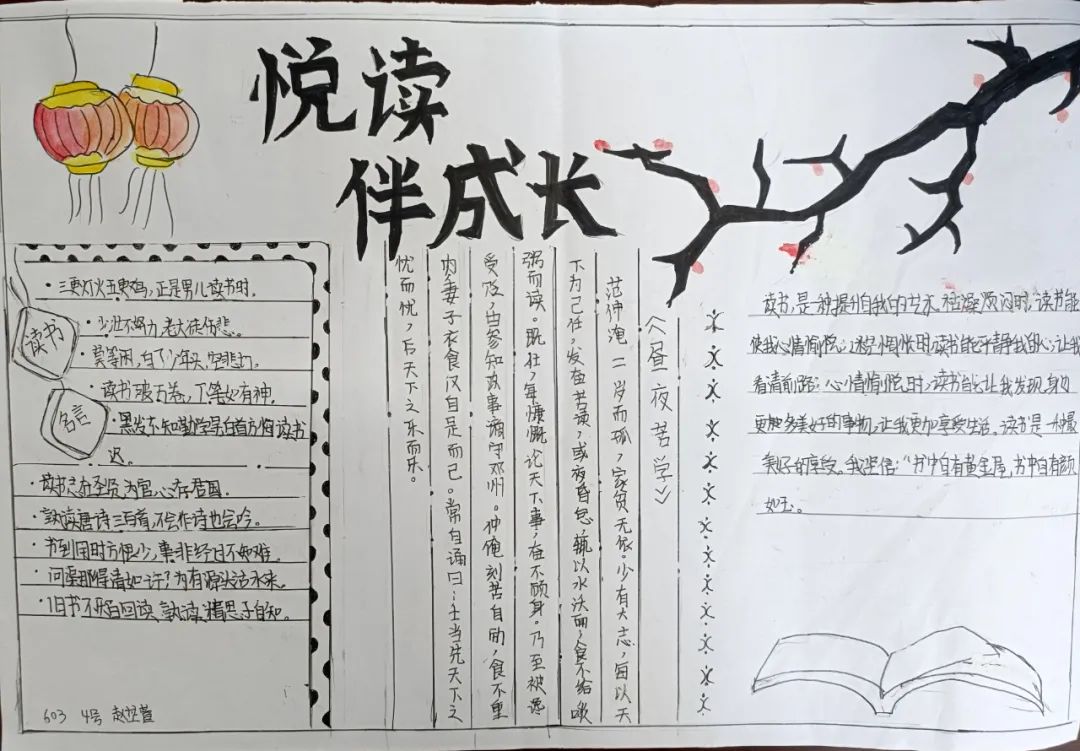 悦读
伴成长
读书
名言
·三更灯火五更鸡,正是男儿读书时。
·少壮不努力,老大徒伤悲。
·莫等闲,白了少年头,空悲切。
·读书破万卷,下笔如有神。
·黑发不知勤学早,白首方悔读书
迟。
·读书志在圣贤,为官心存君国。
·熟读唐诗三百首,不会作诗也会吟。
·书到用时方恨少,事非经过不知难。
·问渠那得清如许?为有源头活水来。
·旧书不厌百回读,熟读精思子自知。
603 4号
《昼夜苦学》
范仲淹二岁而孤,家贫无依。少有大志,每以天
下为己任,发奋苦读,或夜昏怠,辄以水沃面;食不给,啖
粥而读。既仕,每慷慨论天下事,奋不顾身。乃至被谗
受贬,由参知政事谪守邓州。仲淹刻苦自励,食不重
肉,妻子衣食仅自足而已。常自诵曰:士当先天下之
忧而忧,后天下之乐而乐。
读书,是一种提升自我的艺术。在烦闷时,读书能
使我心情愉悦;迷惘惆怅时,读书能平静我的心,让我
看清前路;心情愉悦时,读书会让我发现身边
更加多美好的事物,让我更加享受生活。读书是一种最
美好的享受。我坚信:“书中自有黄金屋,书中自有颜
如玉。